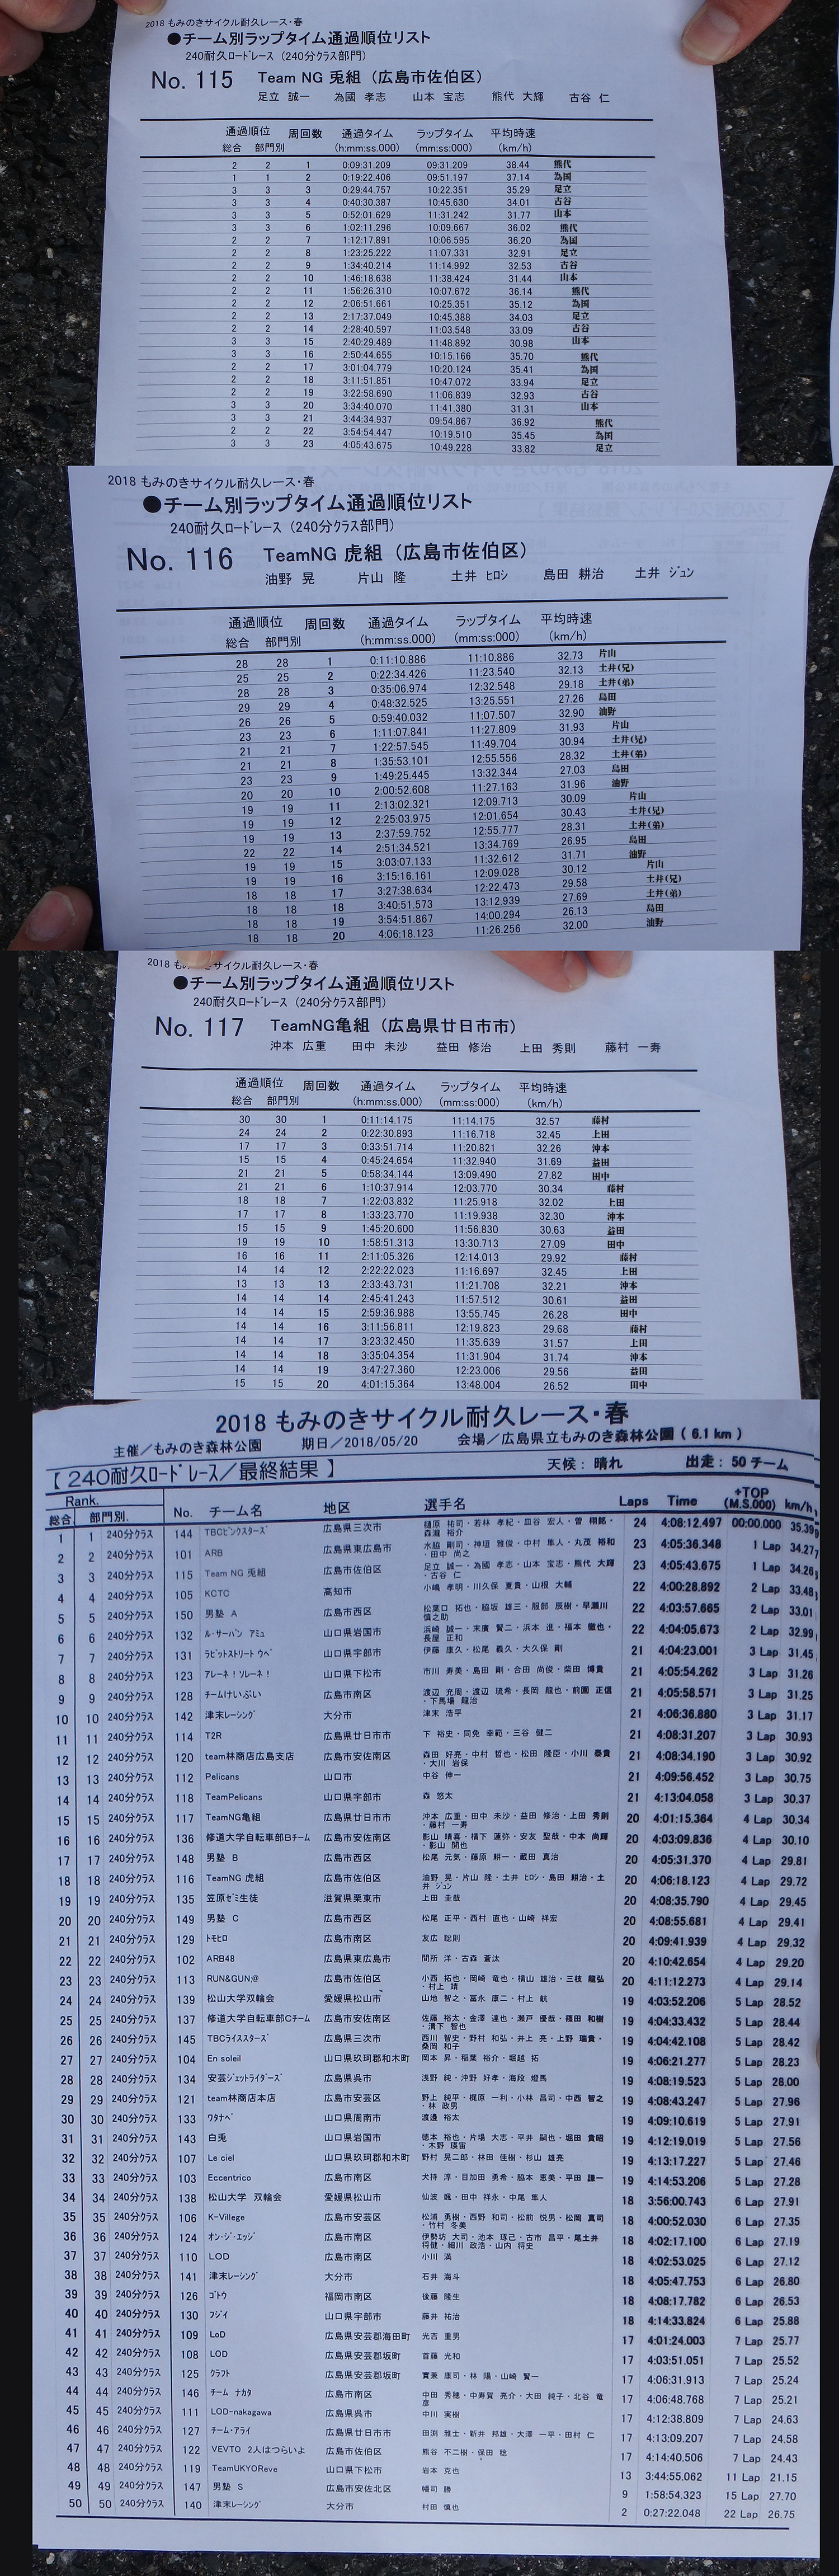 2018 もみのきサイクル耐久レース・春
●チーム別ラップタイム通過順位リスト
240耐久ロードレース（240分クラス部門）
No. 115 Team NG 兎組（広島市佐伯区）
足立 誠一 為國 孝志 山本 宝志 熊代 大輝 古谷 仁
通過順位 周回数 通過タイム ラップタイム 平均時速
総合 部門別 (h:mm:ss.000) (mm:ss.000) (km/h)
2 2 1 0:09:31.209 09:31.209 38.44 熊代
1 1 2 0:19:22.406 09:51.197 37.14 為国
3 3 3 0:29:44.757 10:22.351 35.29 足立
3 3 4 0:40:30.387 10:45.630 34.01 古谷
3 3 5 0:52:01.629 11:31.242 31.77 山本
3 3 6 1:02:11.296 10:09.667 36.02 熊代
2 2 7 1:12:17.891 10:06.595 36.20 為国
2 2 8 1:23:25.222 11:07.331 32.91 足立
2 2 9 1:34:40.214 11:14.992 32.53 古谷
2 2 10 1:46:18.638 11:38.424 31.44 山本
2 2 11 1:56:26.310 10:07.672 36.14 熊代
2 2 12 2:06:51.661 10:25.351 35.12 為国
2 2 13 2:17:37.049 10:45.388 34.03 足立
2 2 14 2:28:40.597 11:03.548 33.09 古谷
3 3 15 2:40:29.489 11:48.892 30.98 山本
3 3 16 2:50:44.655 10:15.166 35.70 熊代
2 2 17 3:01:04.779 10:20.124 35.41 為国
2 2 18 3:11:51.851 10:47.072 33.94 足立
2 2 19 3:22:58.690 11:06.839 32.93 古谷
3 3 20 3:34:40.070 11:41.380 31.31 山本
3 3 21 3:44:34.937 09:54.867 36.92 熊代
2 2 22 3:54:54.447 10:19.510 35.45 為国
3 3 23 4:05:43.675 10:49.228 33.82 足立
2018 もみのきサイクル耐久レース・春
●チーム別ラップタイム通過順位リスト
240耐久ロードレース（240分クラス部門）
No. 116 TeamNG 虎組（広島市佐伯区）
油野 晃 片山 隆 土井 ヒロシ 島田 耕治 土井 ジュン
通過順位 周回数 通過タイム ラップタイム 平均時速
総合 部門別 (h:mm:ss.000) (mm:ss.000) (km/h)
28 28 1 0:11:10.886 11:10.886 32.73 片山
25 25 2 0:22:34.426 11:23.540 32.13 土井(兄)
28 28 3 0:35:06.974 12:32.548 29.18 土井(弟)
29 29 4 0:48:32.525 13:25.551 27.26 島田
26 26 5 0:59:40.032 11:07.507 32.90 油野
23 23 6 1:11:07.841 11:27.809 31.93 片山
21 21 7 1:22:57.545 11:49.704 30.94 土井(兄)
21 21 8 1:35:53.101 12:55.556 28.32 土井(弟)
23 23 9 1:49:25.445 13:32.344 27.03 島田
20 20 10 2:00:52.608 11:27.163 31.96 油野
19 19 11 2:13:02.321 12:09.713 30.09 片山
19 19 12 2:25:03.975 12:01.654 30.43 土井(兄)
19 19 13 2:37:59.752 12:55.777 28.31 土井(弟)
22 22 14 2:51:34.521 13:34.769 26.95 島田
19 19 15 3:03:07.133 11:32.612 31.71 油野
19 19 16 3:15:16.161 12:09.028 30.12 片山
18 18 17 3:27:38.634 12:22.473 29.58 土井(兄)
18 18 18 3:40:51.573 13:12.939 27.69 土井(弟)
18 18 19 3:54:51.867 14:00.294 26.13 島田
18 18 20 4:06:18.123 11:26.256 32.00 油野
2018 も サイクル耐久レース・春
●チーム別ラップタイム通過順位リスト
240耐久ロードレース（240分クラス部門）
No. 117 TeamNG亀組（広島県廿日市市）
沖本 広重 田中 未沙 益田 修治 上田 秀則 藤村 一寿
通過順位 周回数 通過タイム ラップタイム 平均時速
総合 部門別 (h:mm:ss.000) (mm:ss.000) (km/h)
30 30 1 0:11:14.175 11:14.175 32.57 藤村
24 24 2 0:22:30.893 11:16.718 32.45 上田
17 17 3 0:33:51.714 11:20.821 32.26 沖本
15 15 4 0:45:24.654 11:32.940 31.69 益田
21 21 5 0:58:34.144 13:09.490 27.82 田中
21 21 6 1:10:37.914 12:03.770 30.34 藤村
18 18 7 1:22:03.832 11:25.918 32.02 上田
17 17 8 1:33:23.770 11:19.938 32.30 沖本
15 15 9 1:45:20.600 11:56.830 30.63 益田
19 19 10 1:58:51.313 13:30.713 27.09 田中
16 16 11 2:11:05.326 12:14.013 29.92 藤村
14 14 12 2:22:22.023 11:16.697 32.45 上田
13 13 13 2:33:43.731 11:21.708 32.21 沖本
14 14 14 2:45:41.243 11:57.512 30.61 益田
14 14 15 2:59:36.988 13:55.745 26.28 田中
14 14 16 3:11:56.811 12:19.823 29.68 藤村
14 14 17 3:23:32.450 11:35.639 31.57 上田
14 14 18 3:35:04.354 11:31.904 31.74 沖本
14 14 19 3:47:27.360 12:23.006 29.56 益田
15 15 20 4:01:15.364 13:48.004 26.52 田中
2018 もみのきサイクル耐久レース・春
主催／もみのき森林公園 期日／2018/05/20 会場／広島県立もみのき森林公園 ( 6.1 km )
【 240耐久ロードレース／最終結果 】 天候：晴れ 出走：50 チーム
Rank. +TOP
総合 部門別. No. チーム名 地区 選手名 Laps Time (M.S.000) km/h
1 1 240分クラス 144 TBCピンクスターズ 広島県三次市 樋原 祐司・若林 孝紀・皿谷 宏人・曽 栩銘・森瀧 裕介 24 4:08:12.497 00:00.000 35.39
2 2 240分クラス 101 ARB 広島県東広島市 水脇 剛司・神垣 雅俊・中村 隼人・丸茂 裕和・田中 尚之 23 4:05:36.348 1 Lap 34.27
3 3 240分クラス 115 Team NG 兎組 広島市佐伯区 足立 誠一・為國 孝志・山本 宝志・熊代 大輝・古谷 仁 23 4:05:43.675 1 Lap 34.26
4 4 240分クラス 105 KCTC 高知市 小嶋 孝明・川久保 夏貴・山根 大輔 22 4:00:28.892 2 Lap 33.48
5 5 240分クラス 150 男塾 A 広島市西区 松葉口 拓也・脇坂 雄三・服部 辰樹・早瀬川 慎之助 22 4:03:57.665 2 Lap 33.01
6 6 240分クラス 132 ル・サーバン アミュ 山口県岩国市 浜崎 誠一・末廣 賢二・浜本 進・福本 徹也・長屋 正和 22 4:04:05.673 2 Lap 32.99
7 7 240分クラス 131 ラビットストリート ウベ 山口県宇部市 伊藤 康久・松尾 義久・大久保 剛 21 4:04:23.001 3 Lap 31.45
8 8 240分クラス 123 アレーネ！ソレーネ！ 山口県下松市 市川 寿美・島田 剛・合田 尚俊・柴田 博貴 21 4:05:54.262 3 Lap 31.26
9 9 240分クラス 128 チームけいぶい 広島市南区 渡辺 充周・渡辺 琉希・長岡 龍也・前園 正信・下馬場 龍治 21 4:05:58.571 3 Lap 31.25
10 10 240分クラス 142 津末レーシング 大分市 津末 浩平 21 4:06:36.880 3 Lap 31.17
11 11 240分クラス 114 T2R 広島県廿日市市 下 裕史・同免 幸範・三谷 健二 21 4:08:31.207 3 Lap 30.93
12 12 240分クラス 120 team林商店広島支店 広島市安佐南区 森田 好亮・中村 哲也・松田 隆臣・小川 泰貴・大川 岩保 21 4:08:34.190 3 Lap 30.92
13 13 240分クラス 112 Pelicans 山口市 中谷 伸一 21 4:09:56.452 3 Lap 30.75
14 14 240分クラス 118 TeamPelicans 山口県宇部市 森 悠太 21 4:13:04.058 3 Lap 30.37
15 15 240分クラス 117 TeamNG亀組 広島県廿日市市 沖本 広重・田中 未沙・益田 修治・上田 秀則・藤村 一寿 20 4:01:15.364 4 Lap 30.34
16 16 240分クラス 136 修道大学自転車部Bチーム 広島市安佐南区 影山 晴喜・橘下 蓮弥・安友 聖哉・中本 尚輝・影山 開也 20 4:03:09.836 4 Lap 30.10
17 17 240分クラス 148 男塾 B 広島市西区 松尾 元気・藤原 耕一・蔵田 真治 20 4:05:31.370 4 Lap 29.81
18 18 240分クラス 116 TeamNG 虎組 広島市佐伯区 油野 晃・片山 隆・土井 ヒロシ・島田 耕治・土井 ジュン 20 4:06:18.123 4 Lap 29.72
19 19 240分クラス 135 笠原ゼミ生徒 滋賀県栗東市 上田 圭哉 20 4:08:35.790 4 Lap 29.45
20 20 240分クラス 149 男塾 C 広島市西区 松尾 正平・西村 直也・山崎 祥宏 20 4:08:55.681 4 Lap 29.41
21 21 240分クラス 129 トモヒロ 広島市南区 友広 聡則 20 4:09:41.939 4 Lap 29.32
22 22 240分クラス 102 ARB48 広島県東広島市 間所 洋・古森 蒼汰 20 4:10:42.654 4 Lap 29.20
23 23 240分クラス 113 RUN&GUN;@ 広島市佐伯区 小西 拓也・岡崎 竜也・横山 雄治・三枝 龍弘・村上 靖 20 4:11:12.273 4 Lap 29.14
24 24 240分クラス 139 松山大学双輪会 愛媛県松山市 山地 智之・冨永 康二・村上 航 19 4:03:52.206 5 Lap 28.52
25 25 240分クラス 137 修道大学自転車部Cチーム 広島市安佐南区 佐藤 裕太・金澤 達也・瀬戸 優哉・篠田 和樹・溝下 智也 19 4:04:33.432 5 Lap 28.44
26 26 240分クラス 145 TBCライススターズ 広島県三次市 西川 智史・野村 和弘・井上 亮・上野 瑞貴・桑岡 和子 19 4:04:42.108 5 Lap 28.42
27 27 240分クラス 104 En soleil 山口県玖珂郡和木町 岡本 昇・稲葉 裕介・堀越 拓 19 4:06:21.277 5 Lap 28.23
28 28 240分クラス 134 安芸ジェットライダーズ 広島県呉市 浅野 純・沖野 好孝・海段 燈馬 19 4:08:19.523 5 Lap 28.00
29 29 240分クラス 121 team林商店本店 広島市安芸区 野上 純平・梶原 一利・小林 昌司・中西 智之・林 政男 19 4:08:43.247 5 Lap 27.96
30 30 240分クラス 133 ワタナベ 山口県周南市 渡邉 裕太 19 4:09:10.619 5 Lap 27.91
31 31 240分クラス 143 白兎 山口県岩国市 徳本 裕也・片場 大志・平井 嗣也・堀田 貴昭・木野 瑛宙 19 4:12:19.019 5 Lap 27.56
32 32 240分クラス 107 Le ciel 山口県玖珂郡和木町 野村 晃二郎・林田 佳樹・杉山 雄亮 19 4:13:17.227 5 Lap 27.46
33 33 240分クラス 103 Eccentrico 広島市南区 犬持 淳・目加田 勇希・脇本 恵美・平田 謙一 19 4:14:53.206 5 Lap 27.28
34 34 240分クラス 138 松山大学 双輪会 愛媛県松山市 仙波 颯・田中 祥永・中尾 隼人 18 3:56:00.743 6 Lap 27.91
35 35 240分クラス 106 K-Villege 広島市安芸区 松浦 勇樹・西野 和司・松前 悦男・松岡 真司・竹村 冬美 18 4:00:52.030 6 Lap 27.35
36 36 240分クラス 124 オン・ジ・エッジ 広島市南区 伊勢坊 大司・池本 琢己・古市 昌平・尾土井 将健・細川 政浩・山内 将史 18 4:02:17.100 6 Lap 27.19
37 37 240分クラス 110 LOD 広島市南区 小川 満 18 4:02:53.025 6 Lap 27.12
38 38 240分クラス 141 津末レーシング 大分市 石井 海斗 18 4:05:47.753 6 Lap 26.80
39 39 240分クラス 126 ゴトウ 福岡市南区 後藤 隆生 18 4:08:17.782 6 Lap 26.53
40 40 240分クラス 130 フジイ 山口県宇部市 藤井 祐治 18 4:14:33.824 6 Lap 25.88
41 41 240分クラス 109 LoD 広島県安芸郡海田町 光吉 重男 17 4:01:24.003 7 Lap 25.77
42 42 240分クラス 108 LOD 広島県安芸郡坂町 首藤 光和 17 4:03:51.051 7 Lap 25.52
43 43 240分クラス 125 クラフト 広島県安芸郡坂町 實兼 康司・林 陽・山崎 賢一 17 4:06:31.913 7 Lap 25.24
44 44 240分クラス 146 チーム ナカタ 広島市南区 中田 秀穂・中寿賀 亮介・大田 純子・北谷 竜彦 17 4:06:48.768 7 Lap 25.21
45 45 240分クラス 111 LOD-nakagawa 広島県呉市 中川 実樹 17 4:12:38.809 7 Lap 24.63
46 46 240分クラス 127 チーム・アライ 広島県廿日市市 田渕 雅士・新井 邦雄・大澤 一平・田村 仁 17 4:13:09.207 7 Lap 24.58
47 47 240分クラス 122 VEVTO 2人はつらいよ 広島市佐伯区 熊谷 不二樹・保田 稔 17 4:14:40.506 7 Lap 24.43
48 48 240分クラス 119 TeamUKYOReve 山口県下松市 岩本 克也 13 3:44:55.062 11 Lap 21.15
49 49 240分クラス 147 男塾 S 広島市安佐北区 幡司 勝 9 1:58:54.323 15 Lap 27.70
50 50 240分クラス 140 津末レーシング 大分市 村田 慎也 2 0:27:22.048 22 Lap 26.75